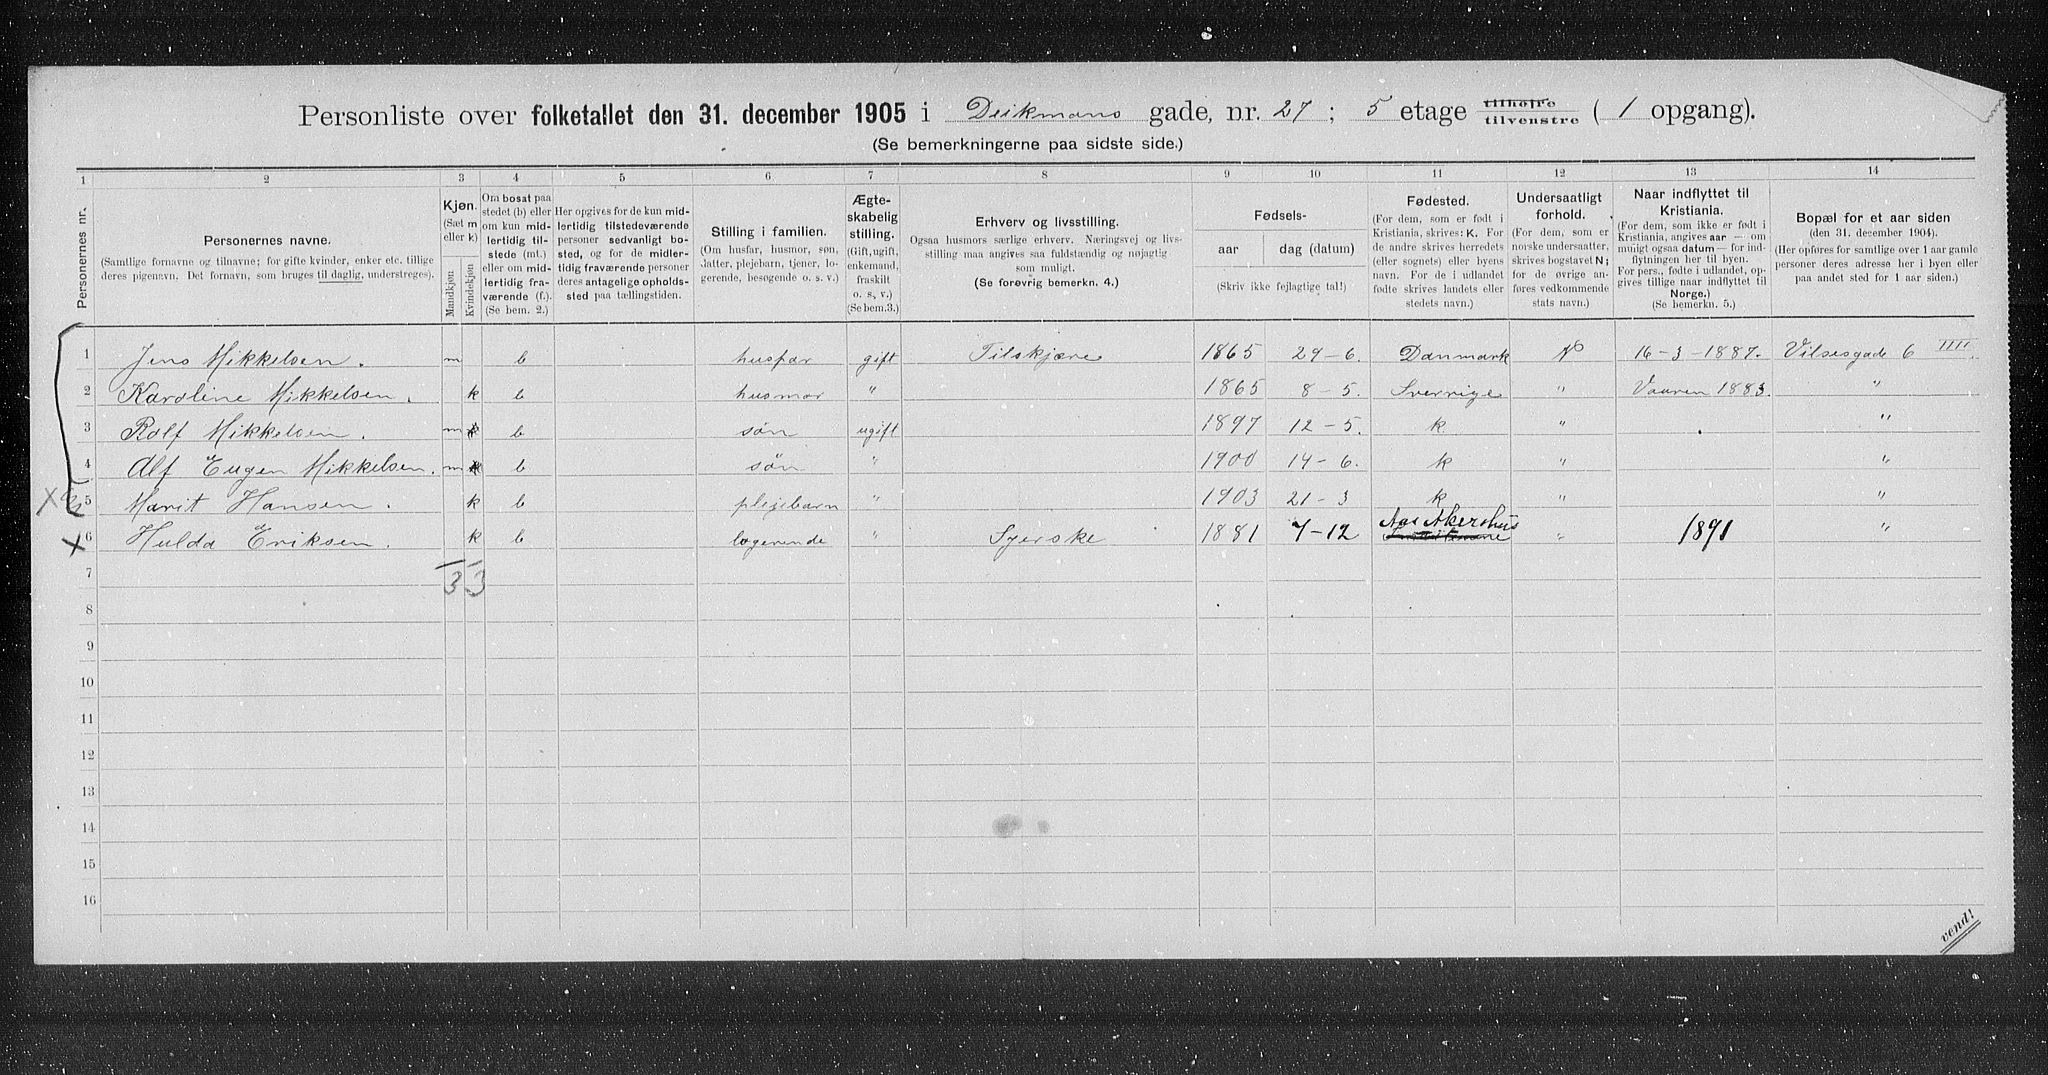 Personliste over folketallet den 31. december 1905 i Deikmans gade, nr. 27 ; 5 etage tilhøire tilvenstre ( 1 opgang).
(Se bemerkningerne paa sidste side.)
1 2 3 4 5 6 7 8 9 10 11 12 13 14
Personernes nr.
Personernes navne.
(Samtlige fornavne og tilnavne; for gifte kvinder, enker etc. tillige
deres pigenavn. Det fornavn, som bruges til daglig, understreges).
Kjøn.
(Sæt m
eller k)
Mandkjøn
Kvindekjøn
Om bosat paa
stedet (b) eller
om kun mid-
lertidig til-
stede (mt.)
eller om mid-
lertidig fra-
værende (f.).
(Se bem. 2.)
Her opgives for de kun mid-
lertidig tilstedeværende
personer sedvanligt bo-
sted, og for de midler-
tidig fraværende personer
deres antagelige opholds-
sted paa tællingstiden.
Stilling i familien.
(Om husfar, husmor, søn,
datter, plejebarn, tjener, lo-
gerende, besøgende o. s. v.)
Ægte-
skabelig
stilling.
(Gift, ugift,
enkemand,
fraskilt
o. s. v.)
(Se bem.3.)
Erhverv og livsstilling.
Ogsaa husmors særlige erhverv. Næringsvej og livs-
stilling maa angives saa fuldstændig og nøjagtig
som muligt.
(Se forøvrig bemerkn. 4.)
Fødsels-
aar dag (datum)
(Skriv ikke fejlagtige tal!)
Fødested.
(For dem, som er født i
Kristiania, skrives: K. For
de andre skrives herredets
(eller sognets) eller byens
navn. For de i udlandet
fødte skrives landets eller
stedets navn.)
Undersaatligt
forhold.
(For dem, som er
norske undersaatter,
skrives bogstavet N;
for de øvrige an-
føres vedkommende
stats navn.)
Naar indflyttet til
Kristiania.
(For dem, som ikke er født i
Kristiania, angives aar — om
muligt ogsaa datum — for ind-
flytningen her til byen.
For pers., fødte i udlandet, op-
gives tillige naar indflyttet til
Norge.)
(Se bemerkn. 5.)
Bopæl for et aar siden
(den 31. december 1904).
(Her opføres for samtlige over 1 aar gamle
personer deres adresse her i byen eller
paa andet sted for 1 aar siden.)
1 Jens Mikkelsen. m b husfar gift Tilskjære 1865 29-6. Danmark N 16-3-1887. Vilsesgade 6 IIII
2 Karoline Mikkelsen. k b husmor " 1865 8-5. Sverrige " Vaaren 1883. "
3 Rolf Mikkelsen. m b søn ugift 1897 12-5. k " "
4 Alf Eugen Mikkelsen. m b søn " 1900 14-6. k " "
5 Marit Hansen. k b plejebarn " 1903 21-3 k " "
6 Hulda Eriksen. k b logerende " Syerske 1881 7-12 Aas Akershus " 1891 "
7 3 3
8
9
10
11
12
13
14
15
16
vend!